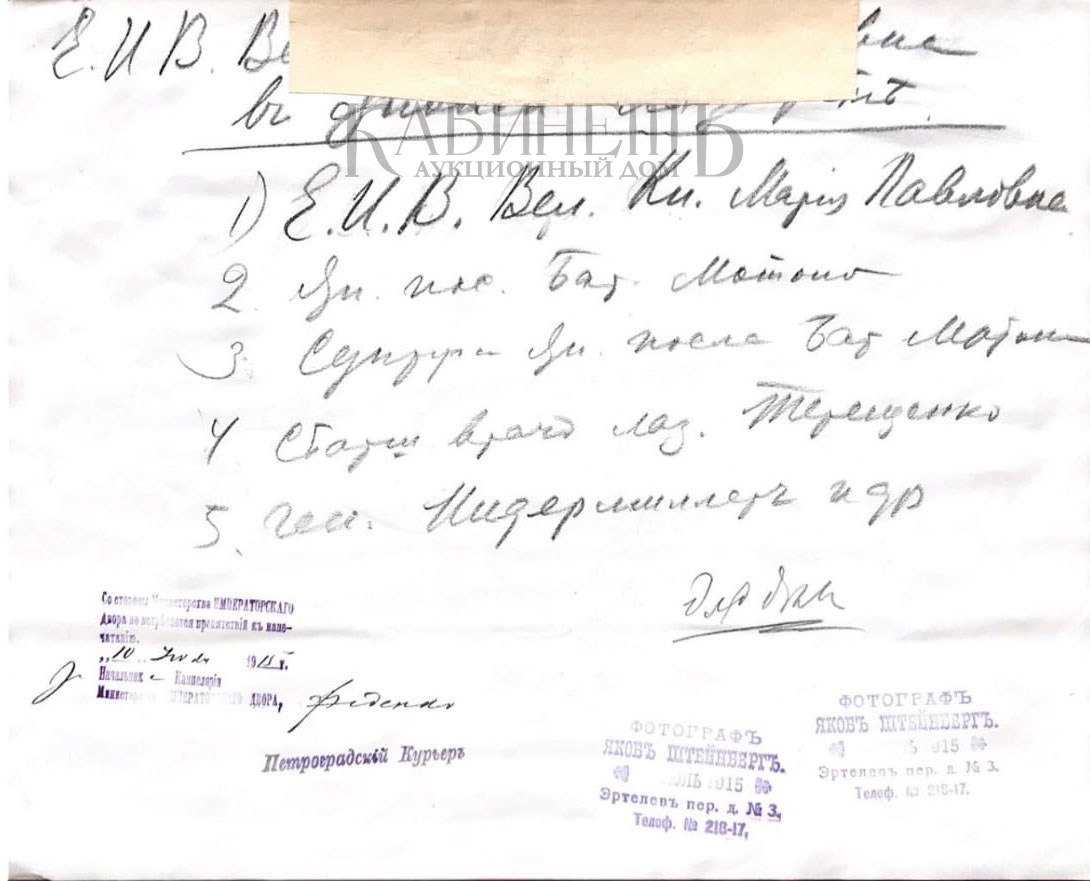 Е. И. В. Ве вна
въ
КАБИНЕТЪ
АУКЦИОННЫЙ ДОМ
1) Е. И. В. Вел. Кн. Марія Павловна
2. Яп. пос. Бар. Мотоно
3. Супруга Яп. посла Бар Мотоно
4 Старш врачъ лаз. Терещенко
5. Ген. Нидермиллеръ и др
Со стороны Министерства ИМПЕРАТОРСКАГО
Двора не встрѣчается препятствій къ напе-
чатанію.
„10„ 1915 г.
Начальник Канцеляріи
Министерства ИМПЕРАТОРСКАГО ДВОРА,
Петроградскій Курьеръ
ФОТОГРАФЪ
ЯКОВЪ ШТЕЙНБЕРГЪ.
ЮЛЬ 1915
Эртелевъ пер. д. № 3.
Телоф. № 218-17,
ФОТОГРАФЪ
ЯКОВЪ ШТЕЙНБЕРГЪ.
Ь 915
Эртелевъ пер. д. № 3.
Телоф. № 218-17.